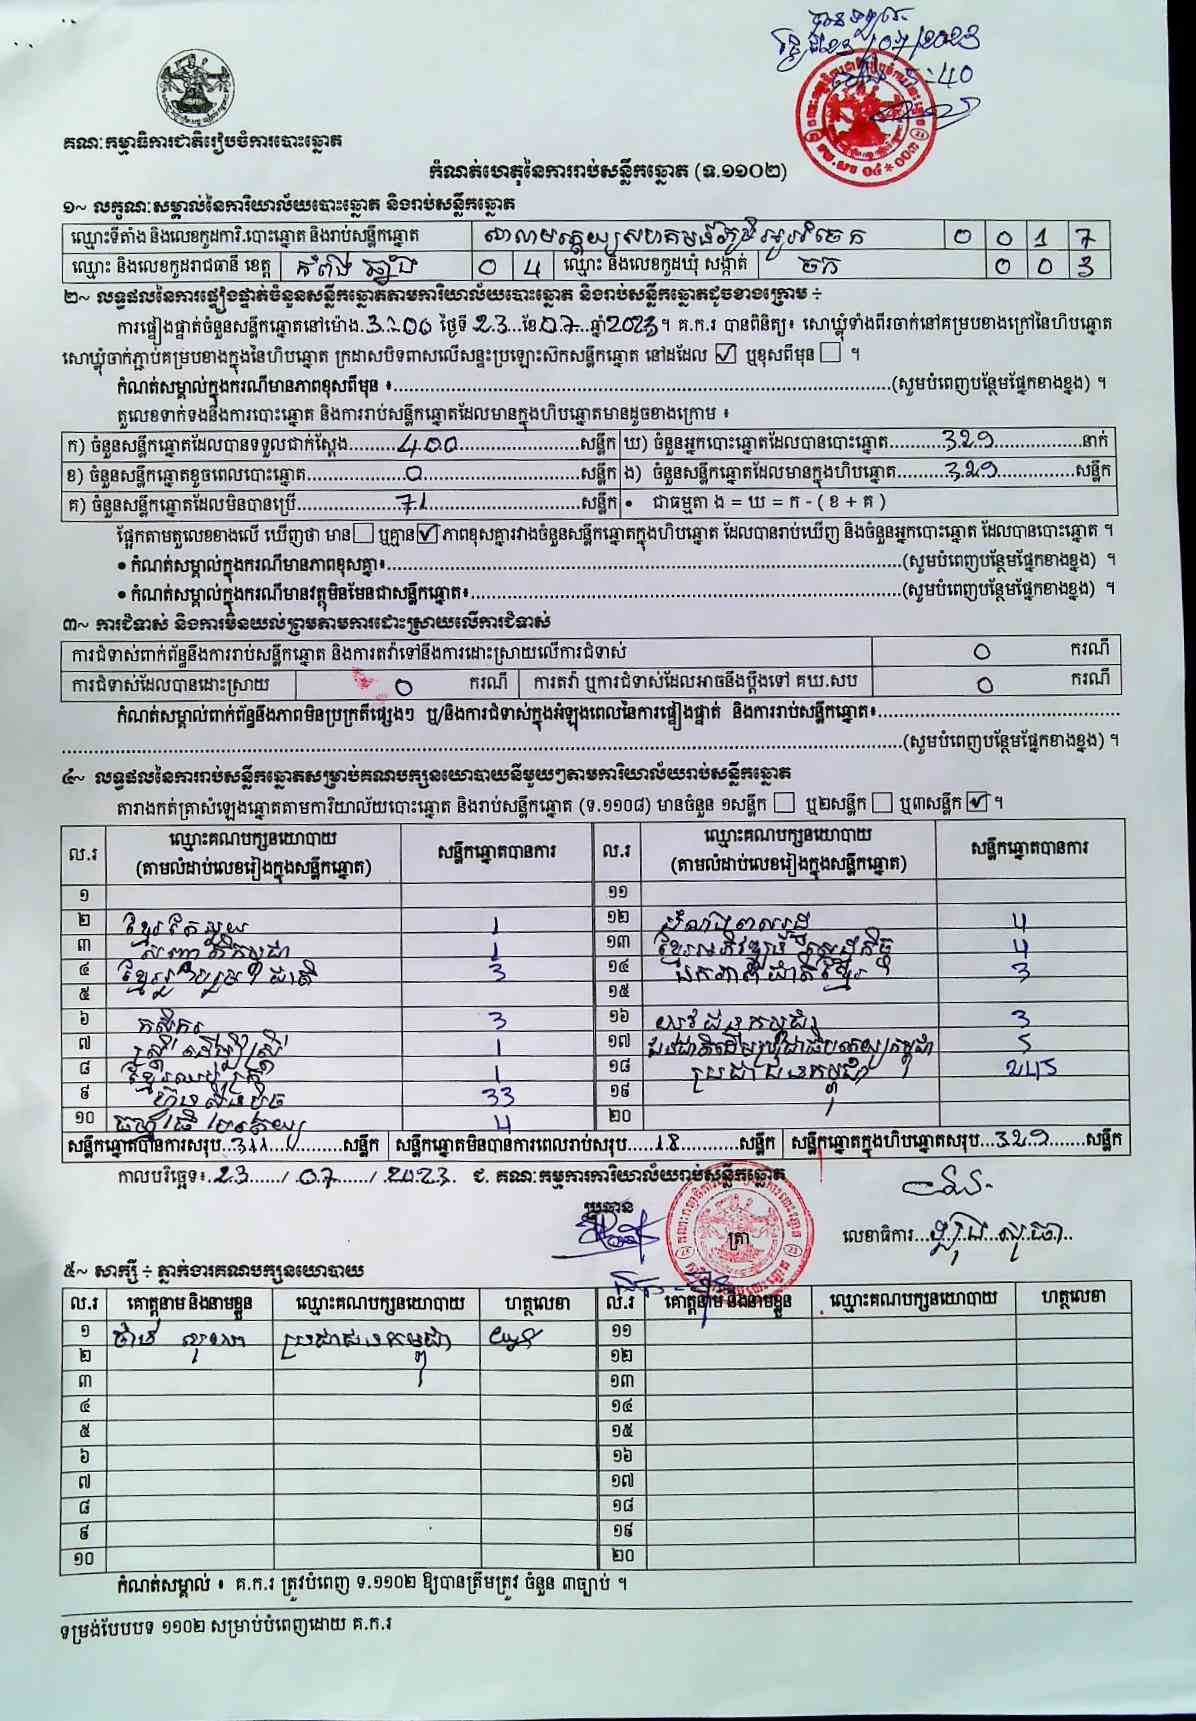 /07/2023
៖40
គណៈកម្មាធិការជាតិរៀបចំការបោះឆ្នោត
កំណត់ហេតុនៃការរាប់សន្លឹកឆ្នោត (ទ.១១០២)
១~ លក្ខណៈសម្គាល់នៃការិយាល័យបោះឆ្នោត និងរាប់សន្លឹកឆ្នោត
ឈ្មោះទីតាំង និងលេខកូដការិ.បោះឆ្នោត និងរាប់សន្លឹកឆ្នោត 0 0 1 7
ឈ្មោះ និងលេខកូដរាជធានី ខេត្ត កំពង់ ឆ្នាំង 0 4 ឈ្មោះ និងលេខកូដឃុំ សង្កាត់ 0 0 3
២~ លទ្ធផលនៃការផ្ទៀងផ្ទាត់ចំនួនសន្លឹកឆ្នោតតាមការិយាល័យបោះឆ្នោត និងរាប់សន្លឹកឆ្នោតដូចខាងក្រោម ÷
ការផ្ទៀងផ្ទាត់ចំនួនសន្លឹកឆ្នោតនៅម៉ោង ថ្ងៃទី 23 ខែ 07 ឆ្នាំ 2023 ។ គ.ក.រ បានពិនិត្យ៖ សោឃ្លុំទាំងពីរចាក់នៅគម្របខាងក្រៅនៃហិបឆ្នោត
សោឃ្លុំចាក់ភ្ជាប់គម្របខាងក្នុងនៃហិបឆ្នោត ក្រដាសបិទពាសលើសន្ទះប្រឡោះស៊កសន្លឹកឆ្នោត នៅដដែល ☑ ឬខុសពីមុន ☐ ។
កំណត់សម្គាល់ក្នុងករណីមានភាពខុសពីមុន ៖ (សូមបំពេញបន្ថែមផ្នែកខាងខ្នង) ។
តួលេខទាក់ទងនឹងការបោះឆ្នោត និងការរាប់សន្លឹកឆ្នោតដែលមានក្នុងហិបឆ្នោតមានដូចខាងក្រោម ៖
ក) ចំនួនសន្លឹកឆ្នោតដែលបានទទួលជាក់ស្តែង 400 សន្លឹក ឃ) ចំនួនអ្នកបោះឆ្នោតដែលបានបោះឆ្នោត 329 នាក់
ខ) ចំនួនសន្លឹកឆ្នោតខូចពេលបោះឆ្នោត 0 សន្លឹក ង) ចំនួនសន្លឹកឆ្នោតដែលមានក្នុងហិបឆ្នោត 329 សន្លឹក
គ) ចំនួនសន្លឹកឆ្នោតដែលមិនបានប្រើ 71 សន្លឹក • ជាធម្មតា ង = ឃ = ក - ( ខ + គ )
ផ្អែកតាមតួលេខខាងលើ ឃើញថា មាន ☐ ឬគ្មាន ☑ ភាពខុសគ្នារវាងចំនួនសន្លឹកឆ្នោតក្នុងហិបឆ្នោត ដែលបានរាប់ឃើញ និងចំនួនអ្នកបោះឆ្នោត ដែលបានបោះឆ្នោត ។
• កំណត់សម្គាល់ក្នុងករណីមានភាពខុសគ្នា៖ (សូមបំពេញបន្ថែមផ្នែកខាងខ្នង) ។
• កំណត់សម្គាល់ក្នុងករណីមានវត្ថុមិនមែនជាសន្លឹកឆ្នោត៖ (សូមបំពេញបន្ថែមផ្នែកខាងខ្នង) ។
៣~ ការជំទាស់ និងការមិនយល់ព្រមតាមការដោះស្រាយលើការជំទាស់
ការជំទាស់ពាក់ព័ន្ធនឹងការរាប់សន្លឹកឆ្នោត និងការតវ៉ាទៅនឹងការដោះស្រាយលើការជំទាស់ 0 ករណី
ការជំទាស់ដែលបានដោះស្រាយ 0 ករណី ការតវ៉ា ឬការជំទាស់ដែលអាចនឹងប្តឹងទៅ គឃ.សប 0 ករណី
កំណត់សម្គាល់ពាក់ព័ន្ធនឹងភាពមិនប្រក្រតីផ្សេងៗ ឬ/និងការជំទាស់ក្នុងអំឡុងពេលនៃការផ្ទៀងផ្ទាត់ និងការរាប់សន្លឹកឆ្នោត៖
(សូមបំពេញបន្ថែមផ្នែកខាងខ្នង) ។
៤~ លទ្ធផលនៃការរាប់សន្លឹកឆ្នោតសម្រាប់គណបក្សនយោបាយនីមួយៗតាមការិយាល័យរាប់សន្លឹកឆ្នោត
តារាងកត់ត្រាសំឡេងឆ្នោតតាមការិយាល័យបោះឆ្នោត និងរាប់សន្លឹកឆ្នោត (ទ.១១០៨) មានចំនួន ១សន្លឹក ☐ ឬ២សន្លឹក ☐ ឬ៣សន្លឹក ☑ ។
ល.រ ឈ្មោះគណបក្សនយោបាយ (តាមលំដាប់លេខរៀងក្នុងសន្លឹកឆ្នោត) សន្លឹកឆ្នោតបានការ ល.រ ឈ្មោះគណបក្សនយោបាយ (តាមលំដាប់លេខរៀងក្នុងសន្លឹកឆ្នោត) សន្លឹកឆ្នោតបានការ
១ ១១
២ ខ្មែរតែមួយ 1 ១២ 4
៣ 1 ១៣ ខ្មែរអភិវឌ្ឍន៍សេដ្ឋកិច្ច 4
៤ ខ្មែររួបរួមជាតិ 3 ១៤ ឯកភាពជាតិខ្មែរ 3
៥ ១៥
៦ កសិករ 3 ១៦ យុវជនកម្ពុជា 3
៧ ស្ត្រីដើម្បីស្ត្រី 1 ១៧ 5
៨ 1 ១៨ ប្រជាជនកម្ពុជា 245
៩ ហ៊្វុនស៊ិនប៉ិច 33 ១៩
១០ ធម្មាធិបតេយ្យ 4 ២០
សន្លឹកឆ្នោតបានការសរុប 311 សន្លឹក សន្លឹកឆ្នោតមិនបានការពេលរាប់សរុប 18 សន្លឹក សន្លឹកឆ្នោតក្នុងហិបឆ្នោតសរុប 329 សន្លឹក
កាលបរិច្ឆេទ៖ 23 / 07 / 2023 ជ. គណៈកម្មការការិយាល័យរាប់សន្លឹកឆ្នោត
ប្រធាន
ត្រា
លេខាធិការ
៥~ សាក្សី ÷ ភ្នាក់ងារគណបក្សនយោបាយ
ល.រ គោត្តនាម និងនាមខ្លួន ឈ្មោះគណបក្សនយោបាយ ហត្ថលេខា ល.រ គោត្តនាម និងនាមខ្លួន ឈ្មោះគណបក្សនយោបាយ ហត្ថលេខា
១ ប្រជាជនកម្ពុជា ១១
២ ១២
៣ ១៣
៤ ១៤
៥ ១៥
៦ ១៦
៧ ១៧
៨ ១៨
៩ ១៩
១០ ២០
កំណត់សម្គាល់ ៖ គ.ក.រ ត្រូវបំពេញ ទ.១១០២ ឱ្យបានត្រឹមត្រូវ ចំនួន ៣ច្បាប់ ។
ទម្រង់បែបបទ ១១០២ សម្រាប់បំពេញដោយ គ.ក.រ